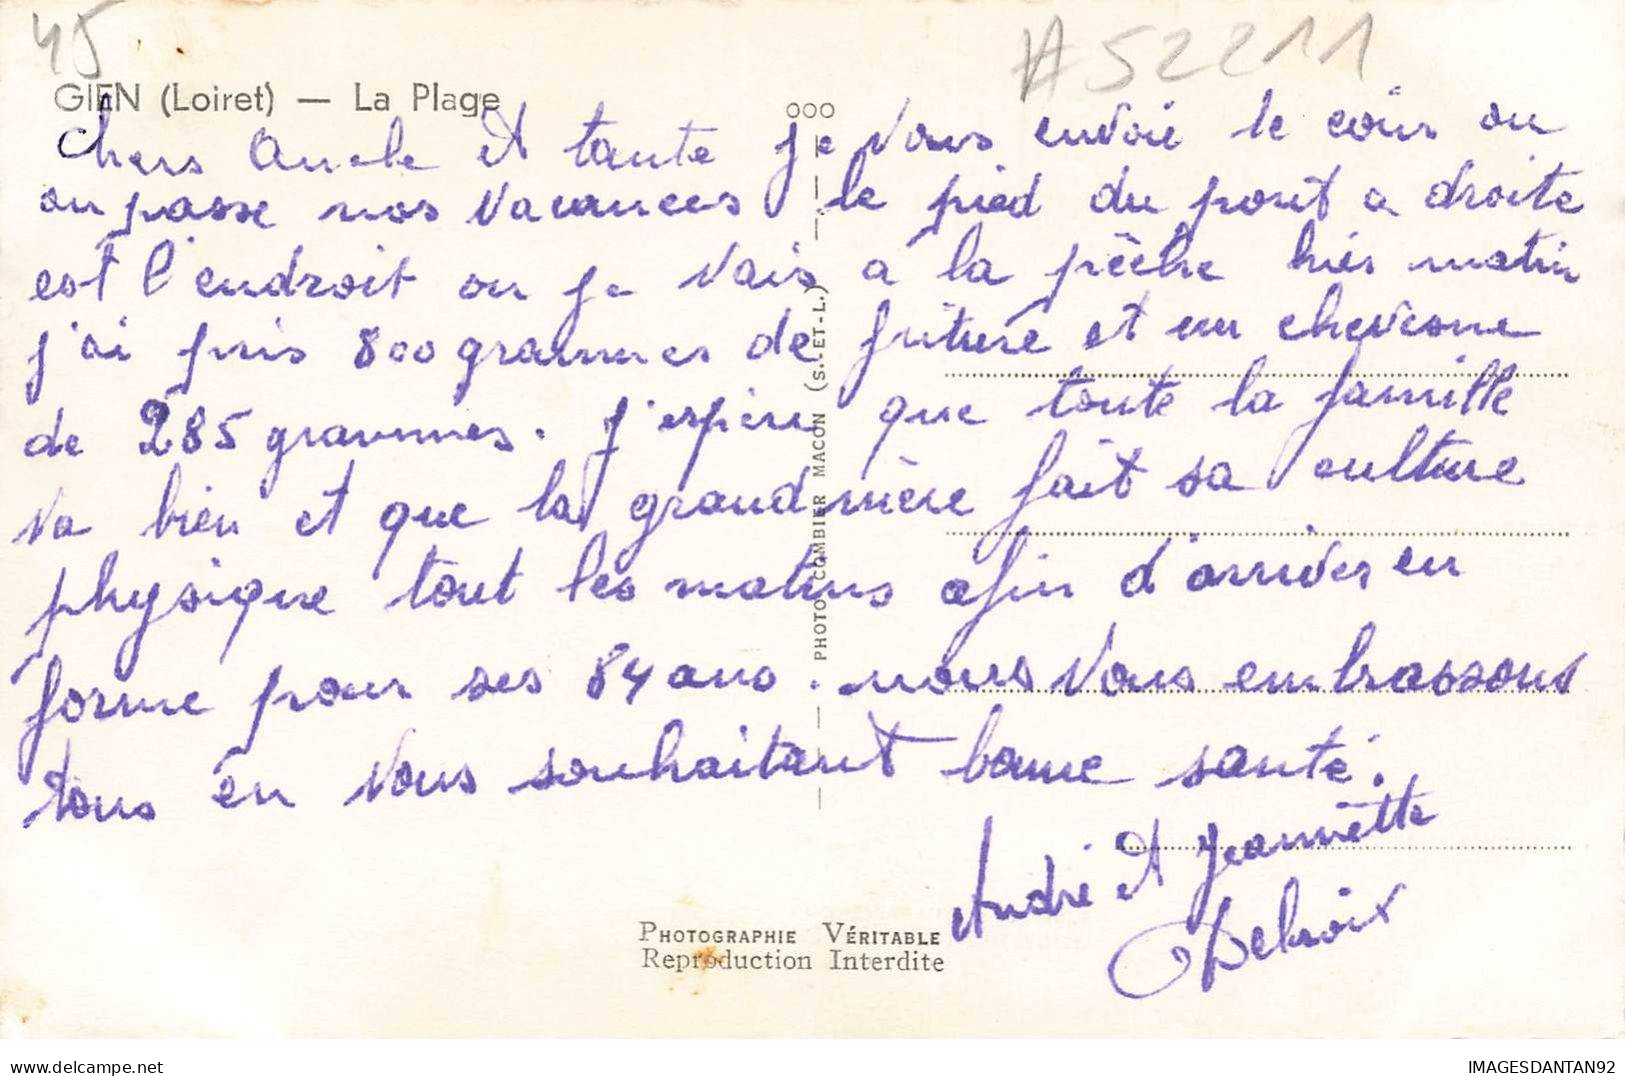 45
#52211
GIEN (Loiret) — La Plage
000
chers oncle et tante je vous envoie le coin ou
on passe nos vacances le pied du pont a droite
est l'endroit ou je vais a la pêche hier matin
j'ai pris 800 grammes de friture et un chevesne
de 285 grammes. j'espère que toute la famille
va bien et que la grand mère fait sa culture
physique tout les matins afin d'arriver en
forme pour ses 84 ans. nous vous embrassons
tous en vous souhaitant bonne santé.
André et Jeannette
Delcroix
PHOTO COMBIER MACON (S.-ET-L.)
PHOTOGRAPHIE VÉRITABLE
Reproduction Interdite
delcampe.net
IMAGESDANTAN92